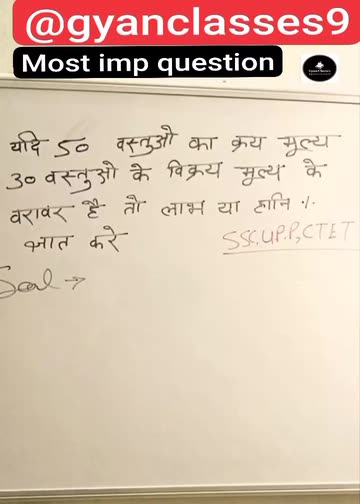 @gyanclasses9
Most imp question
यदि 50 वस्तुओ का क्रय मूल्य
30 वस्तुओ के विक्रय मूल्य के
वरावर है तो लाभ या हानि %.
ज्ञात करे
SSC,UP.P,CTET
Sol →